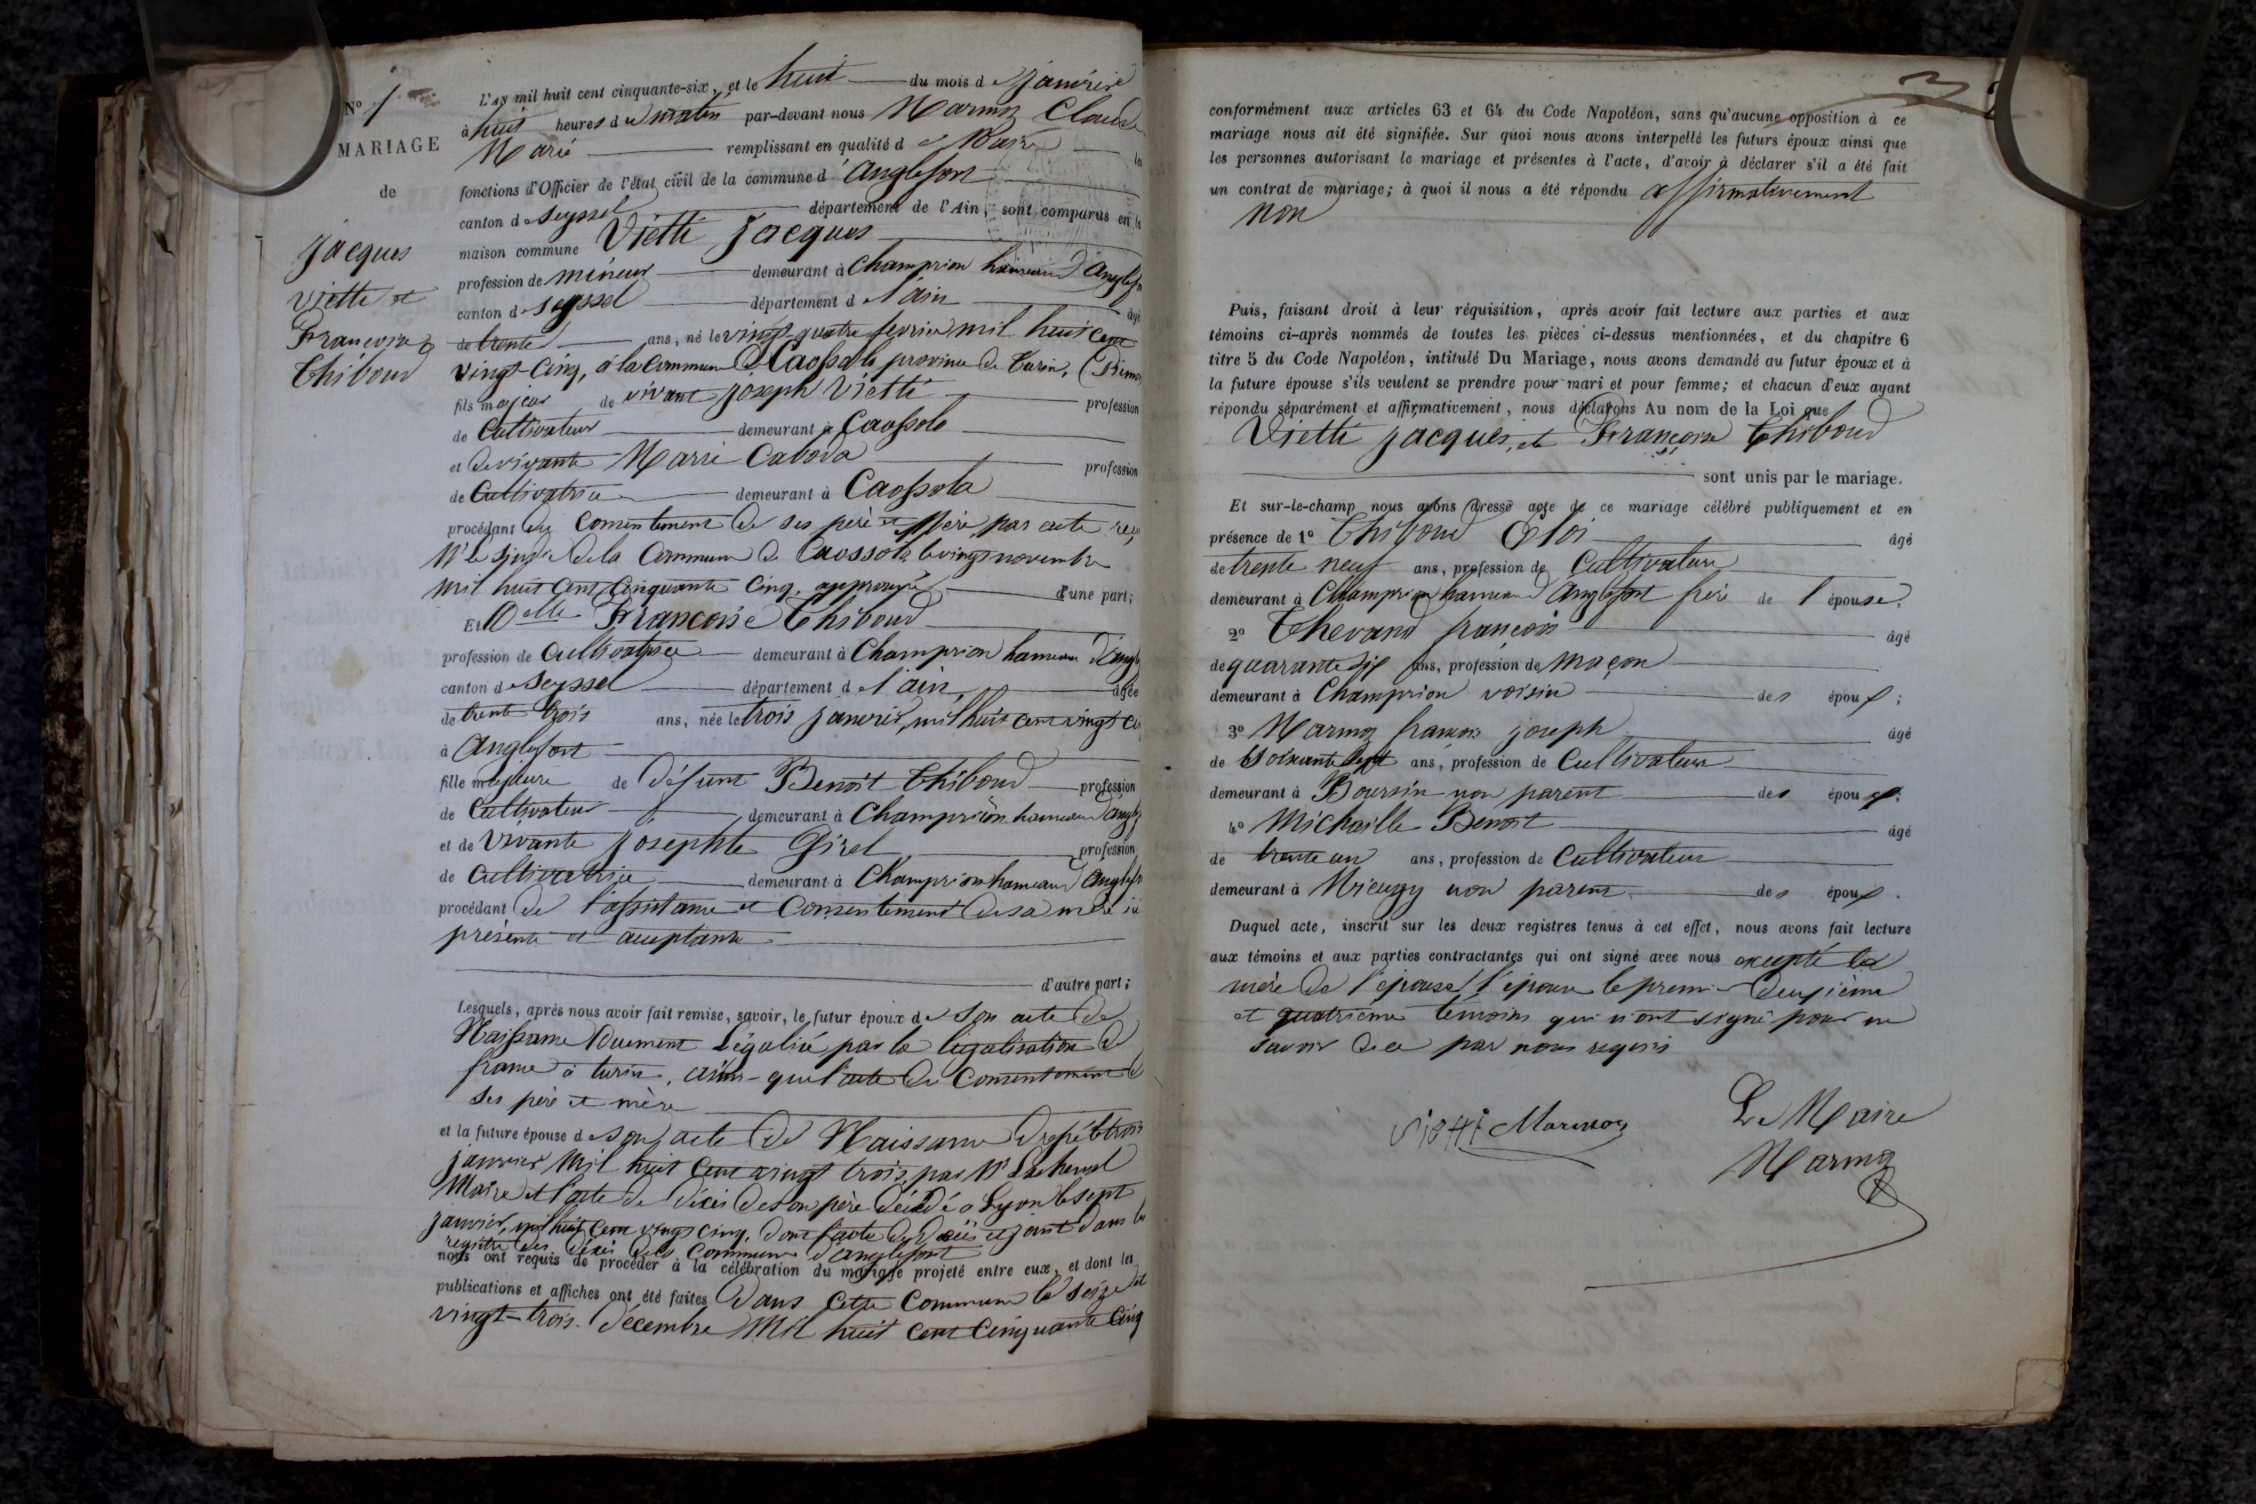 N° 1
MARIAGE
de
Jacques
Vietti et
Françoise
Thiboud
L'AN mil huit cent cinquante-six, et le huit du mois de janvier
à huit heures du matin par-devant nous Marmoz Claude
Marie remplissant en qualité de Maire
fonctions d'Officier de l'état civil de la commune d'Anglefort
canton de Seyssel département de l'Ain, sont comparus en la
maison commune Vietti Jacques
profession de mineur demeurant à Champrion hameau d'Anglefo
canton de Seyssel département de l'ain âgé
de trente ans, né le vingt quatre fevrier mil huit cent
vingt-cinq, à la Commune de province de Turin, (Piémo
fils majeur de vivant Joseph Vietti profession
de Cultivateur demeurant à
et de vivante Marie profession
de Cultivatrice demeurant à
procédant du Consentement de ses père et Mère, par acte reçu
Mr le de la Commune de le vingt novembre
mil huit cent cinquante cinq, approuvé d'une part;
Et Delle Françoise Thiboud
profession de Cultivatrice demeurant à Champrion hameau d'angl
canton de Seyssel département de l'ain, âgée
de trente trois ans, née le trois janvier, mil huit cent vingt
à Anglefort
fille majeure de défunt Benoit Thiboud profession
de Cultivateur demeurant à Champrion hameau d'angl
et de Vivante Josephte Girel profession
de Cultivatrice demeurant à Champrion hameau d'anglef
procédant de l'assistance et Consentement de sa mère ici
présente et acceptante
d'autre part;
Lesquels, après nous avoir fait remise, savoir, le futur époux de son acte de
Naissance Duement Légalisé par la legalisation de
france à turin, ainsi-que l'acte du Consentement de
ses père et mère
et la future épouse de son acte de Naissance le trois
janvier Mil huit cent vingt trois, par Mr
Maire et l'acte de décès de son père décédé à Lyon le sept
janvier, mil huit cent vingt cinq, dont l'acte de Décès est joint dans le
registre des décès de la Commune d'anglefort
nous ont requis de procéder à la célébration du mariage projeté entre eux, et dont les
publications et affiches ont été faites dans cette Commune le seize et
vingt-trois décembre Mil huit cent Cinquante Cinq
conformément aux articles 63 et 64 du Code Napoléon, sans qu'aucune opposition à ce
mariage nous ait été signifiée. Sur quoi nous avons interpellé les futurs époux ainsi que
les personnes autorisant le mariage et présentes à l'acte, d'avoir à déclarer s'il a été fait
un contrat de mariage; à quoi il nous a été répondu affirmativement
non
Puis, faisant droit à leur réquisition, après avoir fait lecture aux parties et aux
témoins ci-après nommés de toutes les pièces ci-dessus mentionnées, et du chapitre 6
titre 5 du Code Napoléon, intitulé Du Mariage, nous avons demandé au futur époux et à
la future épouse s'ils veulent se prendre pour mari et pour femme; et chacun d'eux ayant
répondu séparément et affirmativement, nous déclarons Au nom de la Loi que
Vietti Jacques, et Françoise Thiboud
sont unis par le mariage.
Et sur-le-champ nous avons dressé acte de ce mariage célébré publiquement et en
présence de 1° Thiboud Eloi âgé
de trente neuf ans, profession de Cultivateur
demeurant à Champrion hameau d'Anglefort frère de l'épouse;
2° Thevand françois âgé
de quarante six ans, profession de maçon
demeurant à Champrion voisin des époux;
3° Marmoz françois joseph âgé
de soixante sept ans, profession de Cultivateur
demeurant à Boursin non parent des époux;
4° Michaille Benoit âgé
de trente un ans, profession de Cultivateur
demeurant à Mieugy non parent des époux.
Duquel acte, inscrit sur les deux registres tenus à cet effet, nous avons fait lecture
aux témoins et aux parties contractantes qui ont signé avec nous excepté la
mère de l'épouse, l'épouse le premier Deuxième
et quatrième témoins qui n'ont signé pour ne
savoir de ce par nous requis
Vietti Marmoz
Le Maire
Marmoz